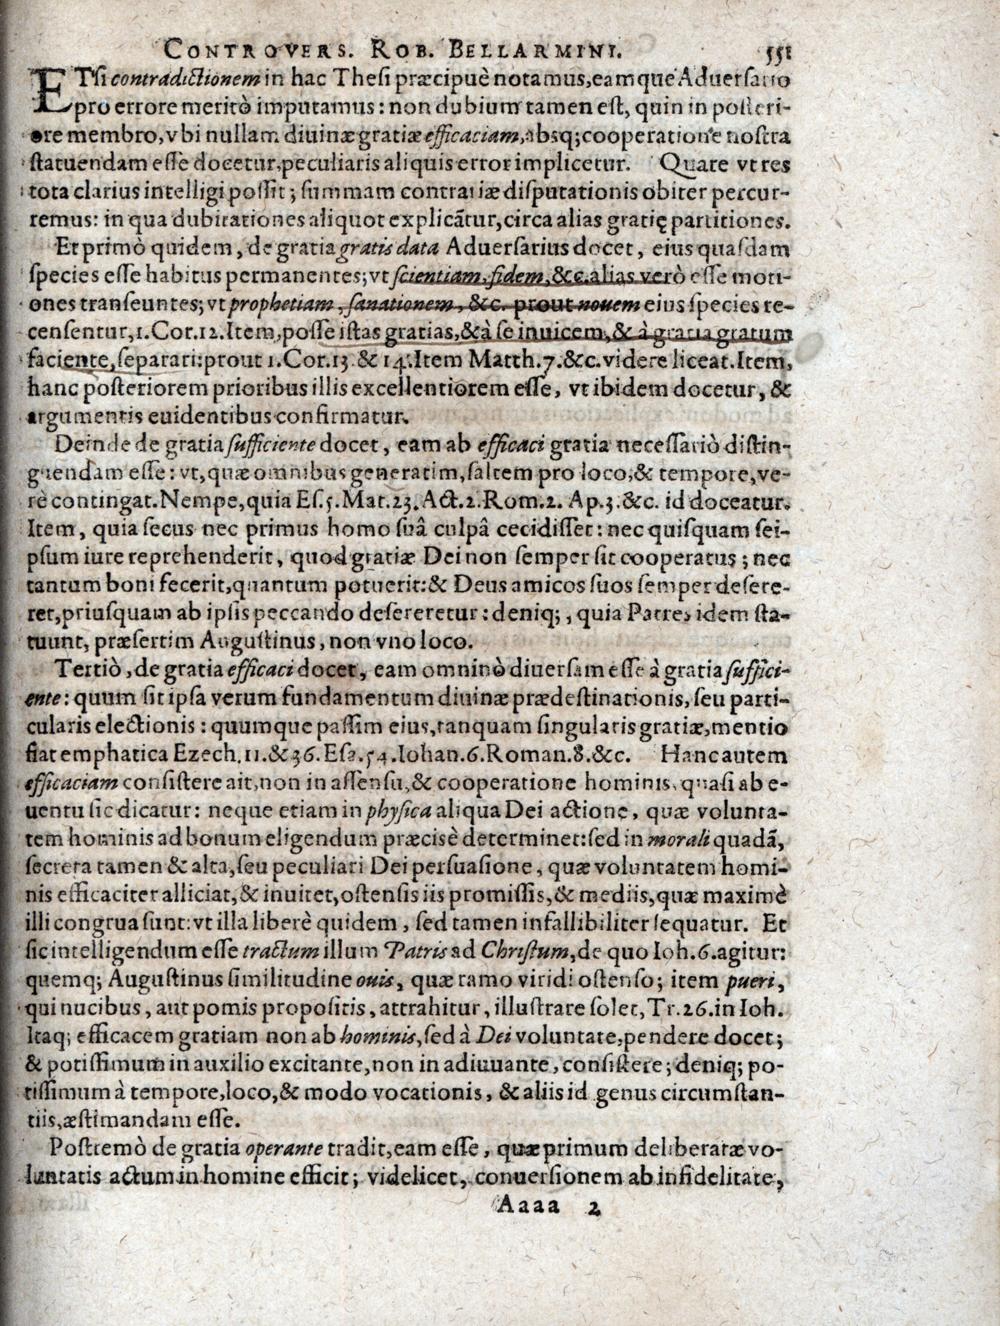 CONTROVERS. ROB. BELLARMINI. 551
ETſi contradictionem in hac Theſi præcipuè notamus, eamque Aduerſario
pro errore meritò imputamus: non dubium tamen eſt, quin in poſteri-
ore membro, vbi nullam diuinæ gratiæ efficaciam, absq; cooperatione noſtra
ſtatuendam eſſe docetur, peculiaris aliquis error implicetur. Quare vt res
tota clarius intelligi poſſit; ſummam contrariæ diſputationis obiter percur-
remus: in qua dubitationes aliquot explicãtur, circa alias gratię partitiones.
Et primò quidem, de gratia gratis data Aduerſarius docet, eius quaſdam
ſpecies eſſe habitus permanentes; vt ſcientiam, fidem, &c. alias verò eſſe moti-
ones tranſeuntes; vt prophetiam, ſanationem, &c. prout nouem eius ſpecies re-
cenſentur, 1. Cor. 12. Item, poſſe iſtas gratias, & à ſe inuicem, & à gratia gratum
faciente, ſeparari: prout 1. Cor. 13. & 14. Item Matth. 7. &c. videre liceat. Item,
hanc poſteriorem prioribus illis excellentiorem eſſe, vt ibidem docetur, &
argumentis euidentibus confirmatur.
Deinde de gratia ſufficiente docet, eam ab efficaci gratia neceſſariò diſtin-
guendam eſſe: vt, quæ omnibus generatim, ſaltem pro loco, & tempore, ve-
rè contingat. Nempe, quia Eſ. 5. Mat. 23. Act. 2. Rom. 2. Ap. 3. &c. id doceatur.
Item, quia ſecus nec primus homo ſuâ culpâ cecidiſſet: nec quiſquam ſei-
pſum iure reprehenderit, quod gratiæ Dei non ſemper ſit cooperatus; nec
tantum boni fecerit, quantum potuerit: & Deus amicos ſuos ſemper deſere-
ret, priuſquam ab ipſis peccando deſereretur: deniq;, quia Patres idem ſta-
tuunt, præſertim Auguſtinus, non vno loco.
Tertiò, de gratia efficaci docet, eam omninò diuerſam eſſe à gratia ſuffici-
ente: quum ſit ipſa verum fundamentum diuinæ prædeſtinationis, ſeu parti-
cularis electionis: quumque paſſim eius, tanquam ſingularis gratiæ, mentio
fiat emphatica Ezech. 11. & 36. Eſa. 54. Iohan. 6. Roman. 8. &c. Hanc autem
efficaciam conſiſtere ait, non in aſſenſu, & cooperatione hominis, quaſi ab e-
uentu ſic dicatur: neque etiam in phyſica aliqua Dei actione, quæ volunta-
tem hominis ad bonum eligendum præcisè determinet: ſed in morali quadã,
ſecreta tamen & alta, ſeu peculiari Dei perſuaſione, quæ voluntatem homi-
nis efficaciter alliciat, & inuitet, oſtenſis iis promiſſis, & mediis, quæ maximè
illi congrua ſunt: vt illa liberè quidem, ſed tamen infallibiliter ſequatur. Et
ſic intelligendum eſſe tractum illum Patris ad Chriſtum, de quo Ioh. 6. agitur:
quemq; Auguſtinus ſimilitudine ouis, quæ ramo viridi oſtenſo; item pueri,
qui nucibus, aut pomis propoſitis, attrahitur, illuſtrare ſolet, Tr. 26. in Ioh.
Itaq; efficacem gratiam non ab hominis, ſed à Dei voluntate, pendere docet;
& potiſſimum in auxilio excitante, non in adiuuante, conſiſtere; deniq; po-
tiſſimum à tempore, loco, & modo vocationis, & aliis id genus circumſtan-
tiis, æſtimandam eſſe.
Poſtremò de gratia operante tradit, eam eſſe, quæ primum deliberatæ vo-
luntatis actum in homine efficit; videlicet, conuerſionem ab infidelitate,
Aaaa 2